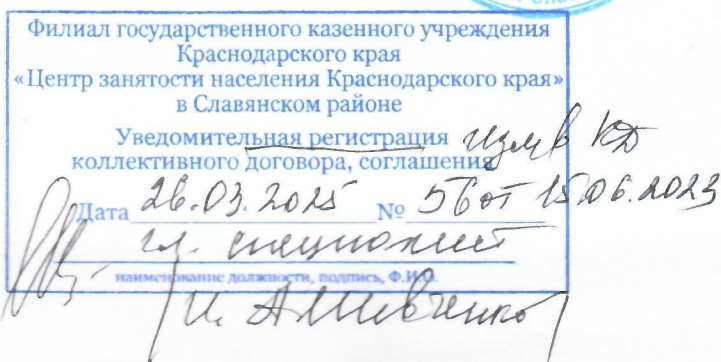 Филиал государственного казенного учреждения
Краснодарского края
«Центр занятости населения Краснодарского края»
в Славянском районе
Уведомительная регистрация изм в КД
коллективного договора, соглашения
Дата 26.03.2025 № 56 от 15.06.2023
гл. специалист
наименование должности, подпись, Ф.И.О.